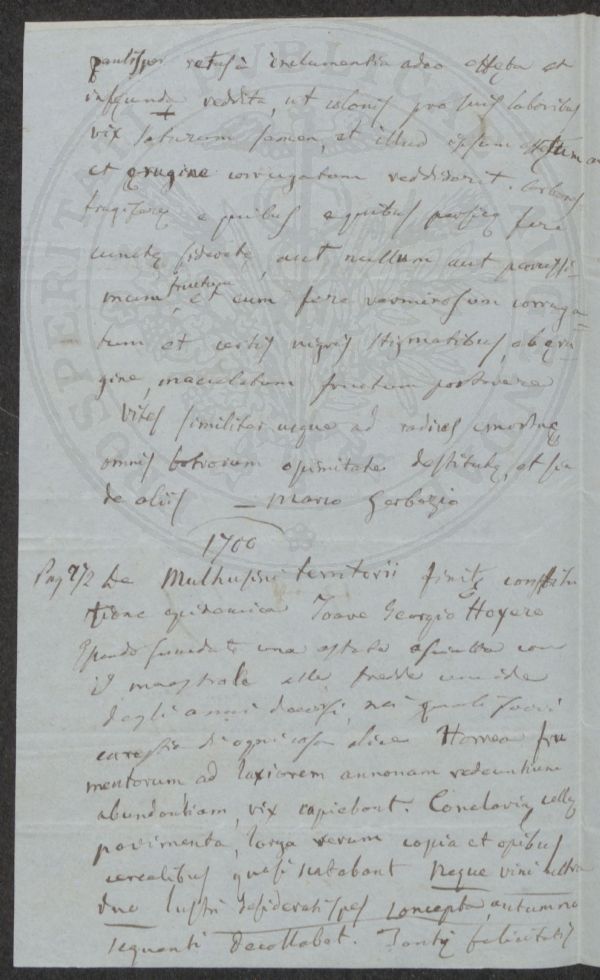 retusa inclementia adeo effęta et
infęcunda reddita, ut colonis pro suis laboribus
vix saturum semen, et illud ipsum
et ęrugine corrugatum reddiderit. Arbores
frugiferę e quibus e quibus persicę fere
cunctę sideratę, aut nullum aut
fructum, et eum fere verminosum corruga-
tum et certis nigris stigmatibus, ob ęru
gine, maculatum fructum
Vites similiter usque ad radices emortuę
omnis botrorum opimitate destitutę, et sic
de aliis — Mario Gerbezio
1700
Pag 272 De Mulhusini territorii finitę constitu
tione epidemica Joave Georgio Hoyero
una estate asciutta con
il maestrale alle fredde umide
degli anni decorsi, nei quali
carestia di ogni cosa dice Horrea fru
mentorum ad laxiorem annonam redeuntium
abundantiam, vix capiebant. Conclavia, cellę
pavimenta, larga rerum copia et opibus
cerealibus quasi scatabant Neque vini ultra
duo lustri desiderati spes concepta, autumno
sequenti decollabat. Tantę felicitatis